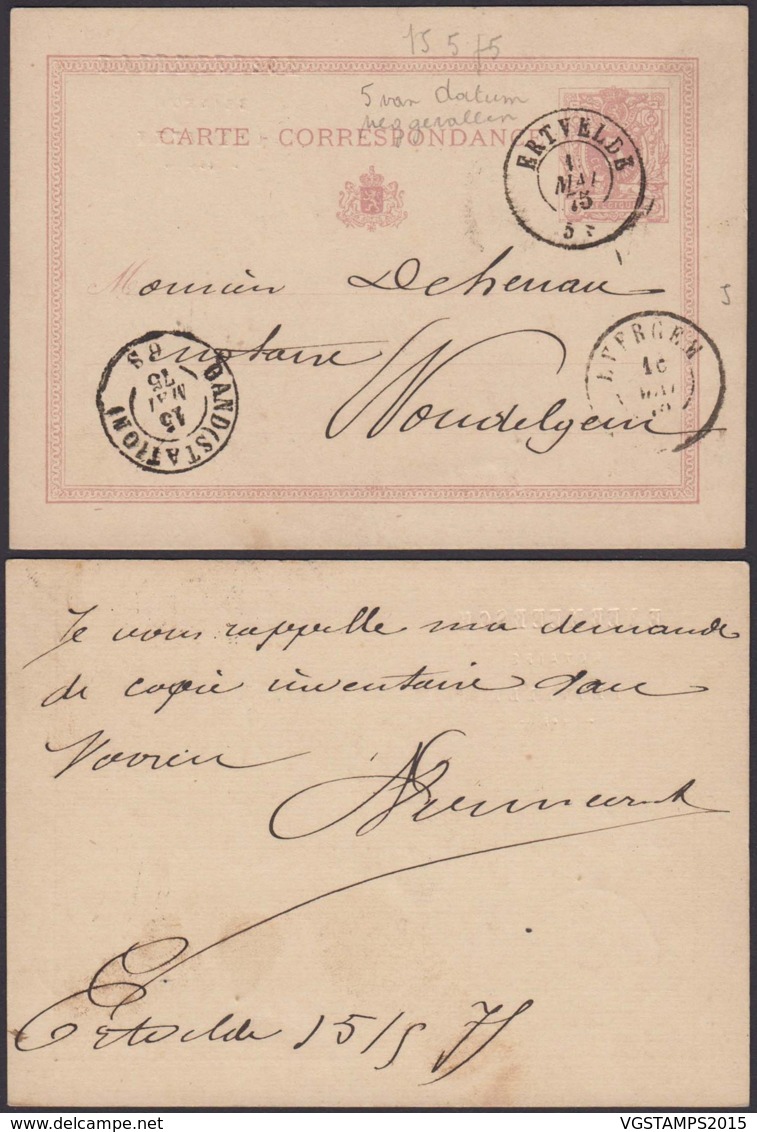 15 5 75
5 van datum
weggevallen
CARTE-CORRESPONDANCE
ERTVELDE
1
MAI
75
5 S
Monsieur Dehenau
notaire
Wondelgem
GAND(STATION)
15
MAI
75
8 S
EVERGEM
16
MAI
5
Je vous rappelle ma demande
de copie inventaire dau
Ertvelde 15/5 75
VGSTAMPS2015